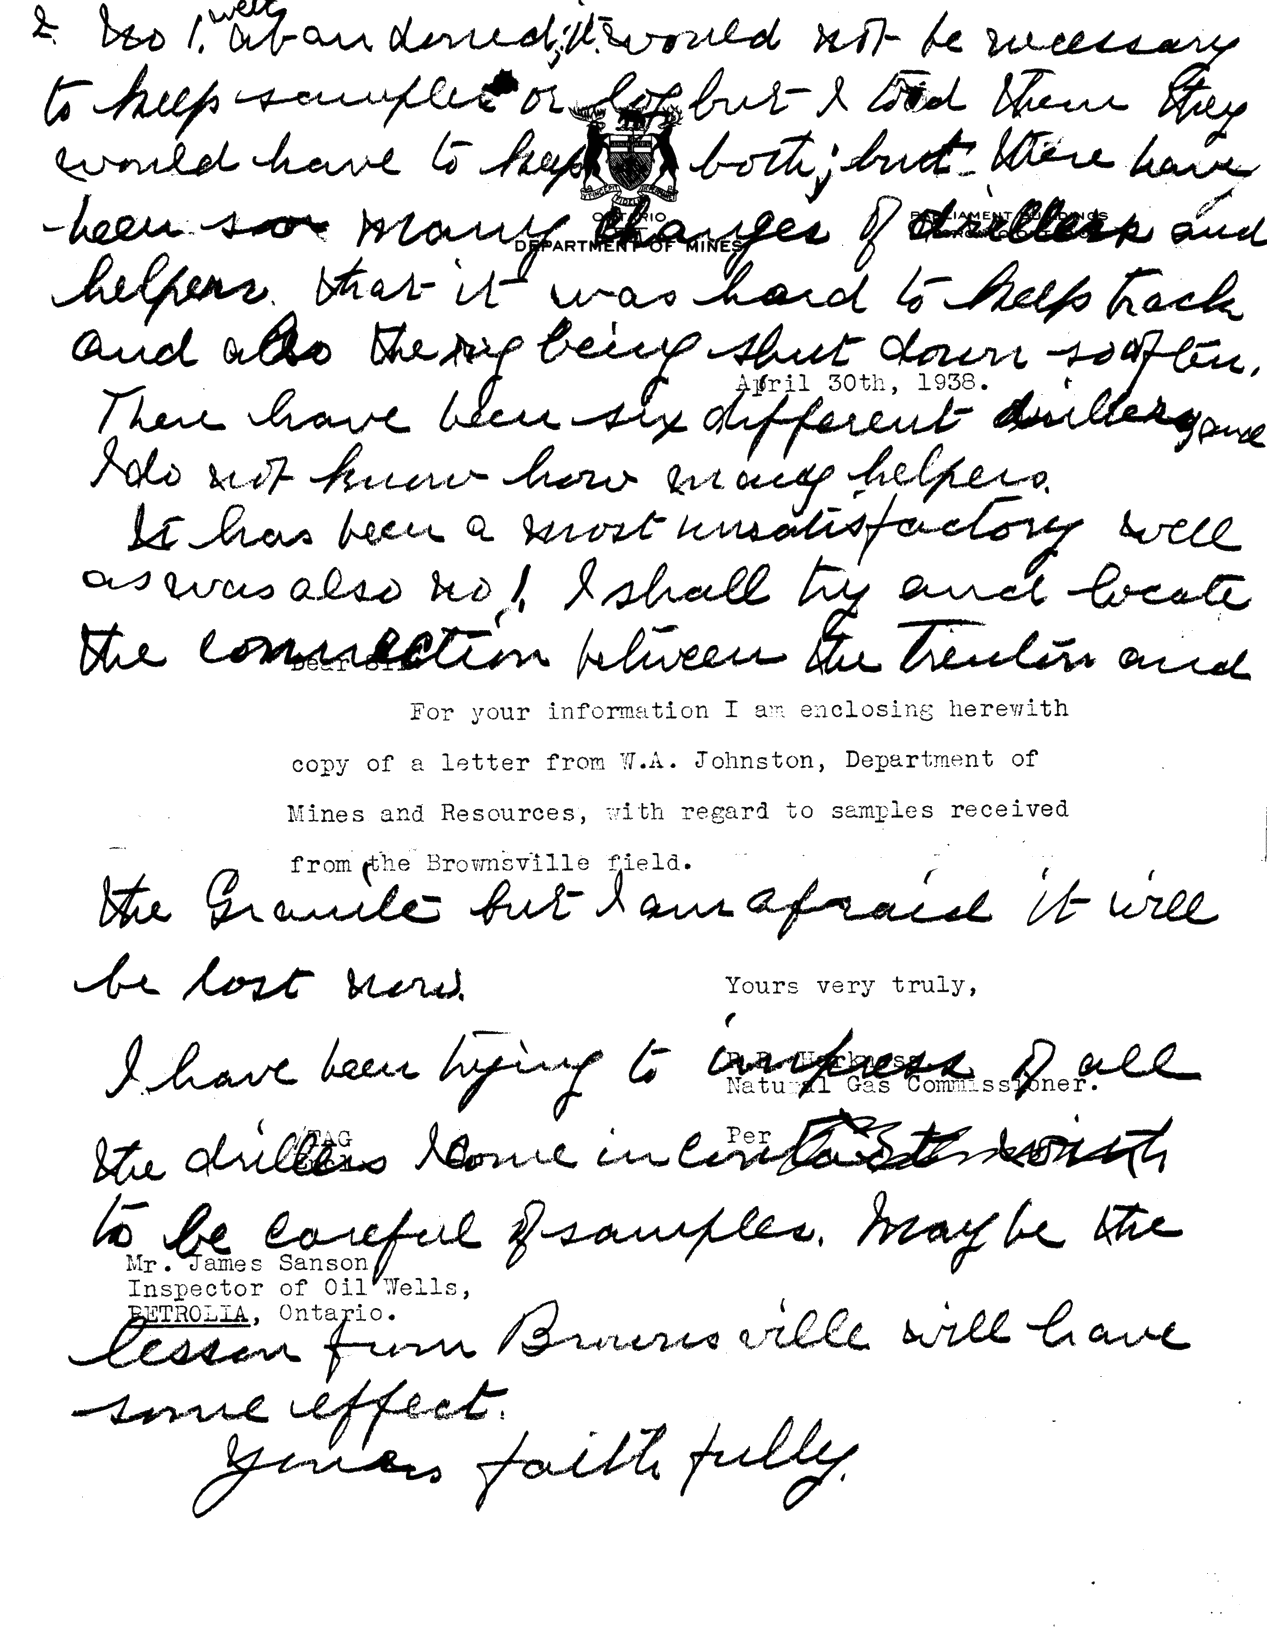 2. No 1. well abandoned, it would not be necessary
to keep samples or log but I told them they
would have to keep both; but there have
been so many changes of drillers and
ONTARIO
PARLIAMENT BUILDINGS
DEPARTMENT OF MINES
helpers that it was hard to keep track
and also the rig being shut down so often.
April 30th, 1938.
There have been six different drillers and
I do not know how many helpers.
It has been a most unsatisfactory well
as was also no 1. I shall try and locate
the connection between the Trenton and
Dear Sir:
For your information I am enclosing herewith
copy of a letter from W.A. Johnston, Department of
Mines and Resources, with regard to samples received
from the Brownsville field.
the Granite but I am afraid it will
be lost now.
Yours very truly,
I have been trying to impress of all
R.B. Harkness
Natural Gas Commissioner.
TAG
Per
the drillers I come in contact with
to be careful of samples. Maybe the
Mr. James Sanson
Inspector of Oil Wells,
PETROLIA, Ontario.
lesson from Brownsville will have
some effect.
Yours faithfully.